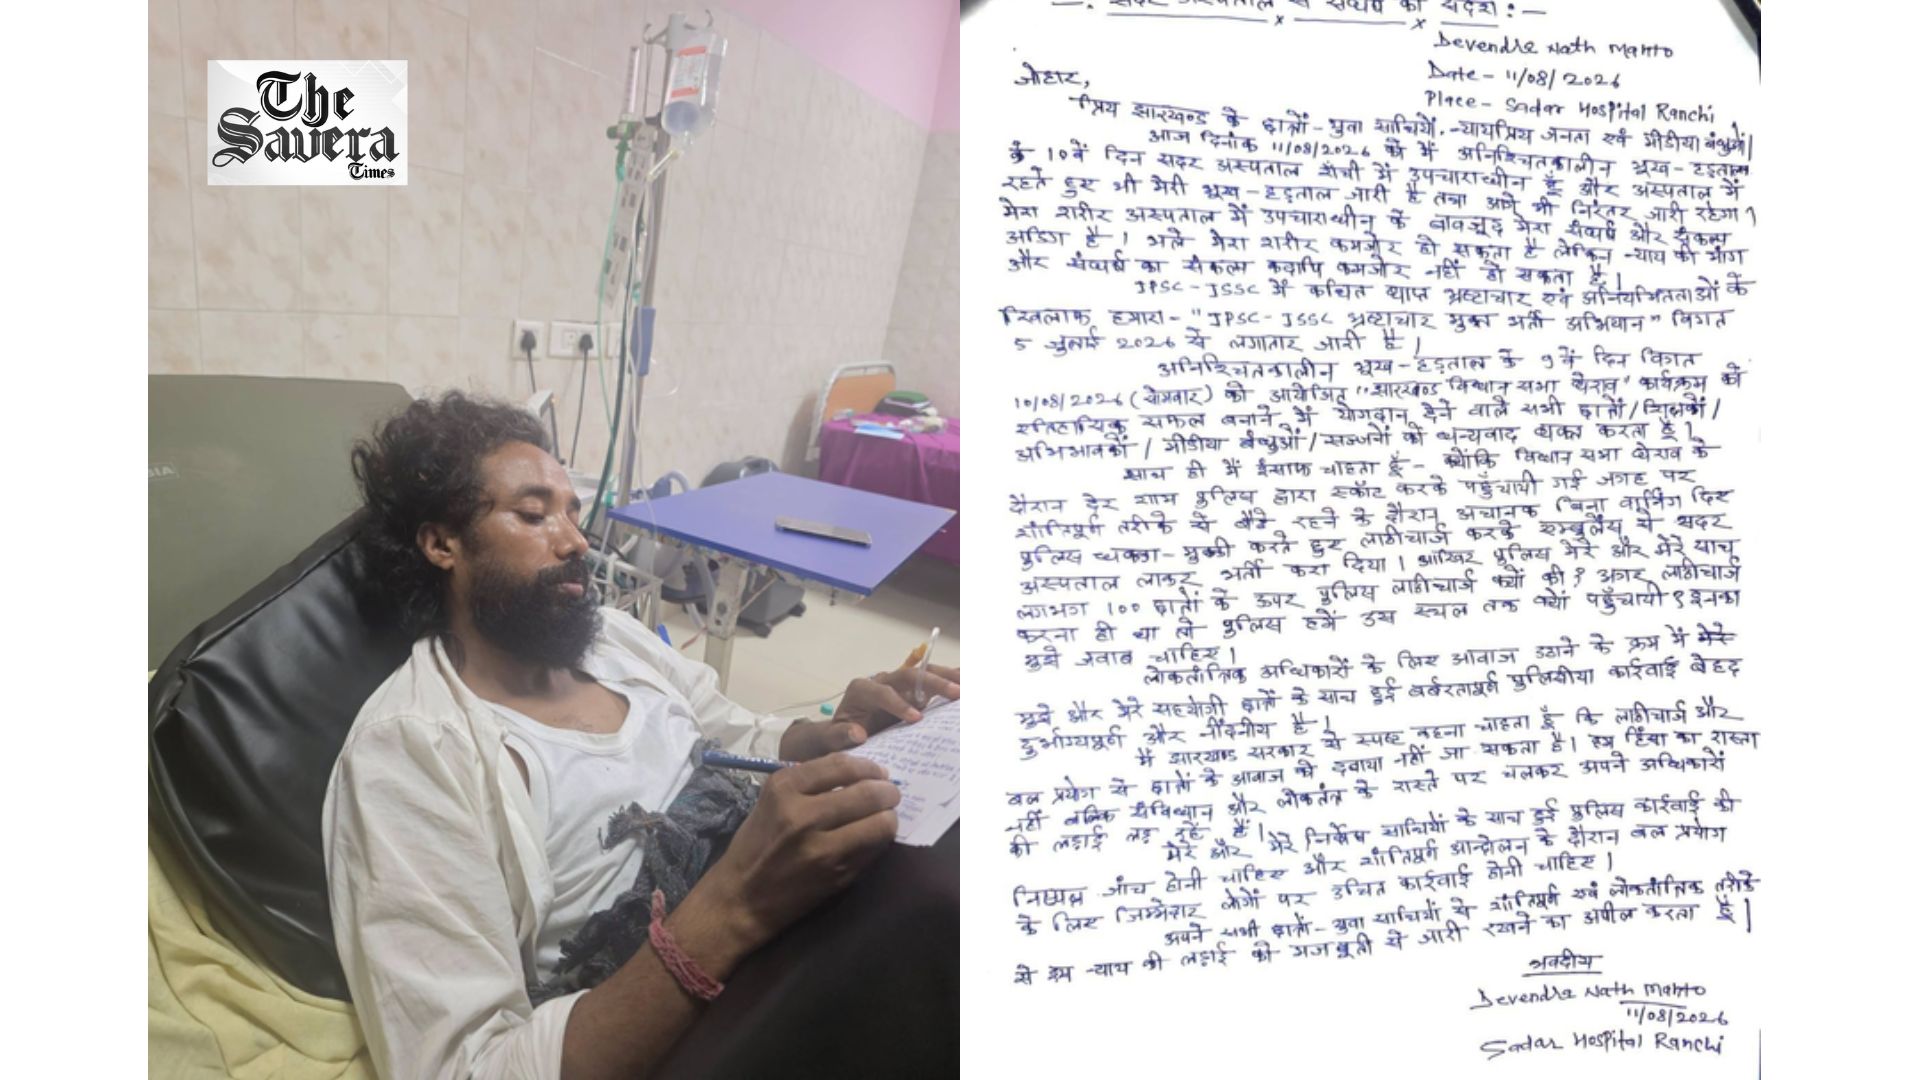 The
Savera
Times
सदर अस्पताल से संघर्ष का संदेश : —
Devendra Nath Mahto
Date - 11/08/2026
Place - Sadar Hospital Ranchi
जोहार,
प्रिय झारखण्ड के छात्रों - युवा साथियों, न्यायप्रिय जनता एवं मीडीया बंधुओं।
आज दिनांक 11/08/2026 को मैं अनिश्चितकालीन भूख - हड़ताल
के 10वें दिन सदर अस्पताल राँची में उपचाराधीन हूँ और अस्पताल में
रहते हुए भी मेरी भूख - हड़ताल जारी है तथा आगे भी निरंतर जारी रहेगा।
मेरा शरीर अस्पताल में उपचाराधीन के बावजूद मेरा संघर्ष और संकल्प
अडिग है। भले मेरा शरीर कमजोर हो सकता है लेकिन न्याय की मांग
और संघर्ष का संकल्प कदापि कमजोर नहीं हो सकता है।
JPSC-JSSC में कथित व्याप्त भ्रष्टाचार एवं अनियमितताओं के
खिलाफ हमारा - "JPSC-JSSC भ्रष्टाचार मुक्त भर्ती अभियान" विगत
5 जुलाई 2026 से लगातार जारी है।
अनिश्चितकालीन भूख - हड़ताल के 9वें दिन विगत
10/08/2026 (सोमवार) को आयोजित "झारखण्ड विधान सभा घेराव" कार्यक्रम को
एतिहासिक सफल बनाने में योगदान देने वाले सभी छात्रों / शिक्षकों /
अभिभावकों / मीडीया बंधुओं / सज्जनों को धन्यवाद व्यक्त करता हूँ।
साथ ही मैं इंसाफ चाहता हूँ - क्योंकि विधान सभा घेराव के
दौरान देर शाम पुलिस द्वारा स्कॉट करके पहुँचायी गई जगह पर
शांतिपूर्ण तरीके से बैठे रहने के दौरान अचानक बिना वार्निंग दिए
पुलिस धक्का - मुक्की करते हुए लाठीचार्ज करके एम्बुलेंस से सदर
अस्पताल लाकर भर्ती करा दिया। आखिर पुलिस मेरे और मेरे साथ
लगभग 100 छात्रों के ऊपर पुलिस लाठीचार्ज क्यों की? अगर लाठीचार्ज
करना ही था तो पुलिस हमें उस स्थल तक क्यों पहुँचायी? इनका
मुझे जवाब चाहिए।
लोकतांत्रिक अधिकारों के लिए आवाज उठाने के क्रम में मेरे
मुझे और मेरे सहयोगी छात्रों के साथ हुई बर्बरतापूर्ण पुलिसीया कार्रवाई बेहद
दुर्भाग्यपूर्ण और नींदनीय है।
मैं झारखण्ड सरकार से स्पष्ट कहना चाहता हूँ कि लाठीचार्ज और
बल प्रयोग से छात्रों के आवाज को दबाया नहीं जा सकता है। हम हिंसा का रास्ता
नहीं बल्कि संविधान और लोकतंत्र के रास्ते पर चलकर अपने अधिकारों
की लड़ाई लड़ रहे हैं।
मेरे और मेरे निर्दोष साथियों के साथ हुई पुलिस कार्रवाई की
निष्पक्ष जांच होनी चाहिए और शांतिपूर्ण आन्दोलन के दौरान बल प्रयोग
के लिए जिम्मेदार लोगों पर उचित कार्रवाई होनी चाहिए।
अपने सभी छात्रों - युवा साथियों से शांतिपूर्ण एवं लोकतांत्रिक तरीके
से इस न्याय की लड़ाई को मजबूती से जारी रखने का अपील करता हूँ।
भवदीय
Devendra Nath Mahto
11/08/2026
Sadar Hospital Ranchi